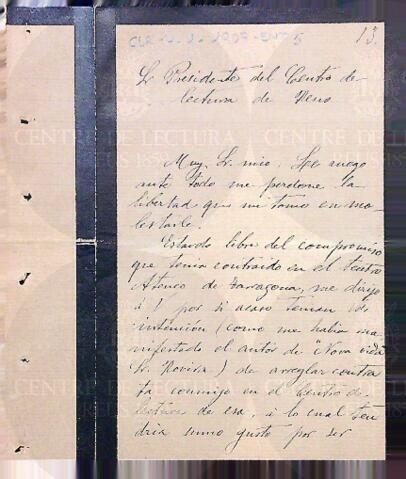 13.
Sr Presidente del Centro de
lectura de Reus
Muy Sr. mio. Le ruego
ante todo me perdone la
libertad que me tomo en mo-
lestarle.
Estando libre del compromiso
que tenia contraido en el teatro
Ateneo de Tarragona, me dirijo
á V por si acaso teman Vds
intención (como me habia ma-
nifestado el autor de "Nova vida
Sr. Rovira) de arreglar contra
ta conmigo en el Centro de
lectura de esa, á lo cual ten
dria sumo gusto por ser
CENTRE DE LECTURA
REUS 1859